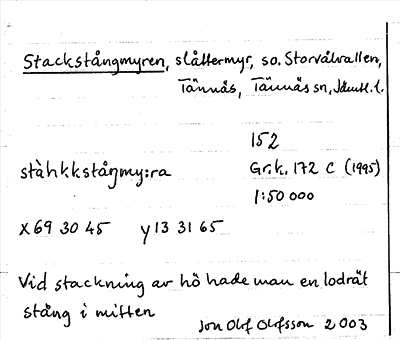 Stackstångmyren, slåttermyr, so. Storvålvallen,
Tännäs, Tännäs sn, Jämtl. l.
152
ståhkkståŋmy:ra Gr.k. 172 C (1995)
1:50 000
X 69 30 45 y 13 31 65
Vid stackning av hö hade man en lodrät
stång i mitten
Jon Olof Olofsson 2003